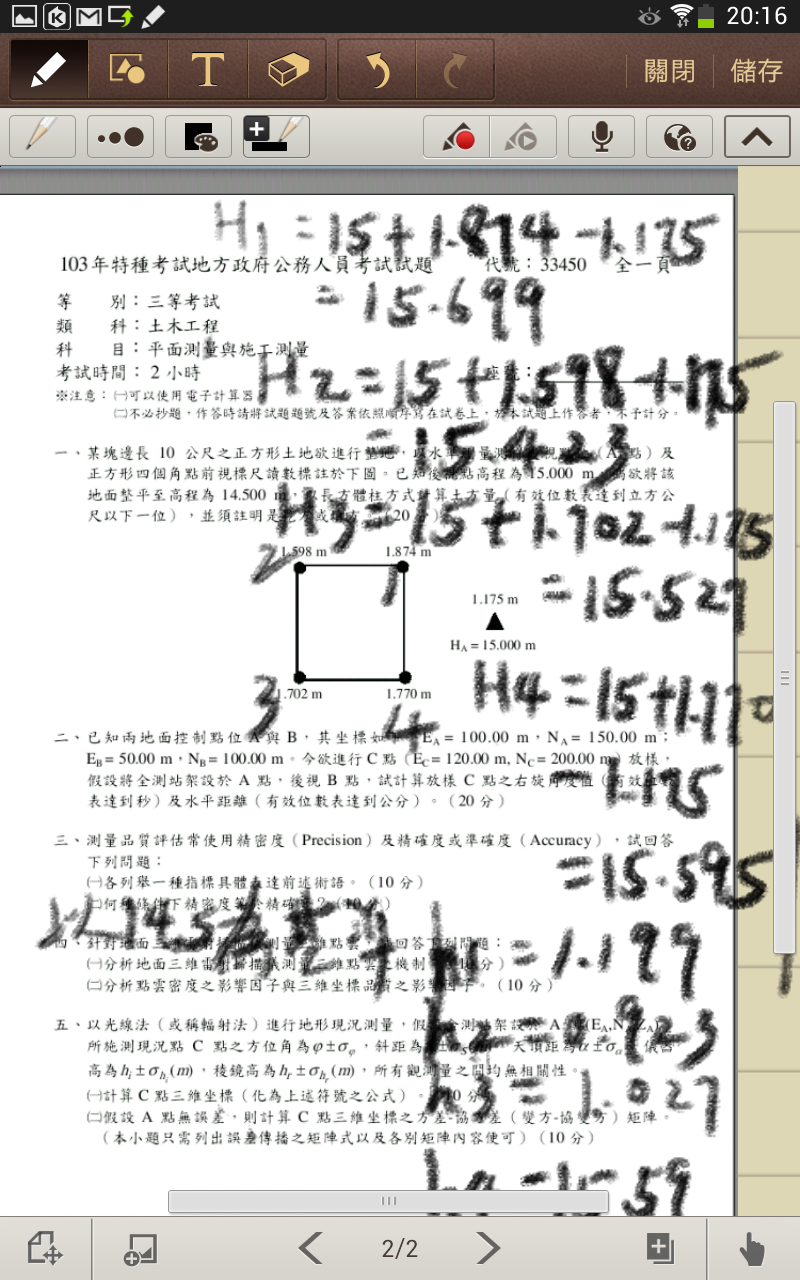 20:16
關閉 儲存
H1 = 15+1.874-1.175
103年特種考試地方政府公務人員考試試題 代號：33450 全一頁
= 15.699
等 別：三等考試
類 科：土木工程
科 目：平面測量與施工測量
考試時間：2 小時 座號：
H2 = 15+1.598-1.175
※注意：㈠可以使用電子計算器。
㈡不必抄題，作答時請將試題題號及答案依照順序寫在試卷上，於本試題上作答者，不予計分。
= 15.423
一、某塊邊長 10 公尺之正方形土地欲進行整地，以水準測量測得後視點 (A 點) 及
正方形四個角點前視標尺讀數標註於下圖。已知後視點高程為 15.000 m，為欲將該
地面整平至高程為 14.500 m，以長方體柱方式計算土方量（有效位數表達到立方公
尺以下一位），並須註明是挖方或填方。（20 分）
H3 = 15+1.702-1.175
2 1.598 m 1.874 m
1
= 15.527
1.175 m
HA = 15.000 m
H4 = 15+1.770
3 1.702 m 1.770 m
4
二、已知兩地面控制點位 A 與 B，其坐標如下：EA = 100.00 m，NA = 150.00 m；
EB = 50.00 m，NB = 100.00 m。今欲進行 C 點（EC = 120.00 m, NC = 200.00 m）放樣，
假設將全測站架設於 A 點，後視 B 點，試計算放樣 C 點之右旋角度值（有效位數
表達到秒）及水平距離（有效位數表達到公分）。（20 分）
-1.175
三、測量品質評估常使用精密度（Precision）及精確度或準確度（Accuracy），試回答
下列問題：
= 15.595
㈠各列舉一種指標具體表達前述術語。（10 分）
㈡何種條件下精密度等於精確度？（10 分）
以14.5為基準 h1 = 1.199
四、針對地面三維雷射掃描儀測量三維點雲，試回答下列問題：
㈠分析地面三維雷射掃描儀測量三維點雲之機制。（10 分）
㈡分析點雲密度之影響因子與三維坐標品質之影響因子。（10 分）
h2 = 0.923
五、以光線法（或稱輻射法）進行地形現況測量，假設全測站架設於 A 點(EA,NA,ZA)，
所施測現況點 C 點之方位角為φ±σφ，斜距為 天頂距為α±σα，儀器
高為hi±σhi(m)，稜鏡高為hr±σhr(m)，所有觀測量之間均無相關性。
h3 = 1.027
㈠計算 C 點三維坐標（化為上述符號之公式）。（10 分）
㈡假設 A 點無誤差，則計算 C 點三維坐標之方差-協方差（變方-協變方）矩陣。
（本小題只需列出誤差傳播之矩陣式以及各別矩陣內容便可）（10 分）
h4 = 15.59
2/2